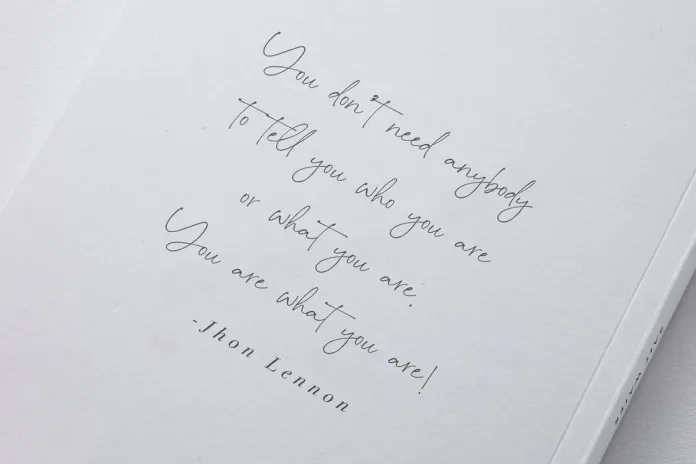 You don't need anybody
to tell you who you are
or what you are.
You are what you are!
-Jhon Lennon